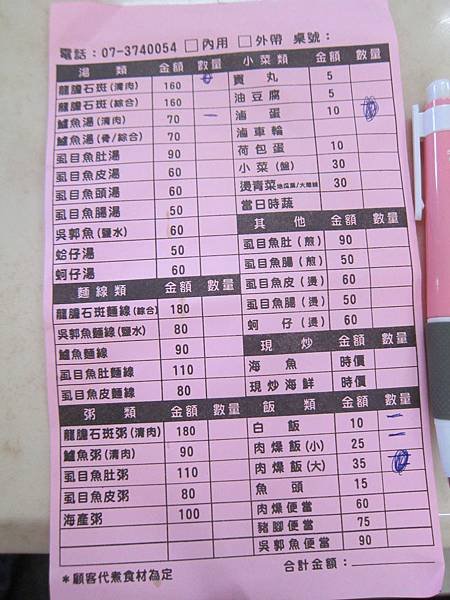 電話：07-3740054 □內用 □外帶 桌號：
湯 類 金額 數量
龍膽石斑（清肉） 160
龍膽石斑（綜合） 160
鱸魚湯（清肉） 70 一
鱸魚湯（骨/綜合） 70
虱目魚肚湯 90
虱目魚皮湯 60
虱目魚頭湯 60
虱目魚腸湯 50
吳郭魚（鹽水） 60
蛤仔湯 50
蚵仔湯 60
麵線類 金額 數量
龍膽石斑麵線（綜合） 180
吳郭魚麵線（鹽水） 80
鱸魚麵線 90
虱目魚肚麵線 110
虱目魚皮麵線 80
粥 類 金額 數量
龍膽石斑粥（清肉） 180
鱸魚粥（清肉） 90
虱目魚肚粥 110
虱目魚皮粥 80
海產粥 100
＊顧客代煮食材為定
小菜類 金額 數量
貢丸 5
油豆腐 5
滷蛋 10
滷車輪
荷包蛋 10
小菜（盤） 30
燙青菜地瓜葉/大陸妹 30
當日時蔬
其 他 金額 數量
虱目魚肚（煎） 90
虱目魚腸（煎） 50
虱目魚皮（燙） 60
虱目魚腸（燙） 50
蚵 仔（燙） 60
現 炒 金額 數量
海 魚 時價
現炒海鮮 時價
飯 類 金額 數量
白 飯 10 一
肉燥飯（小） 25 一
肉燥飯（大） 35
魚 頭 15
肉燥便當 60
豬腳便當 75
吳郭魚便當 90
合計金額：